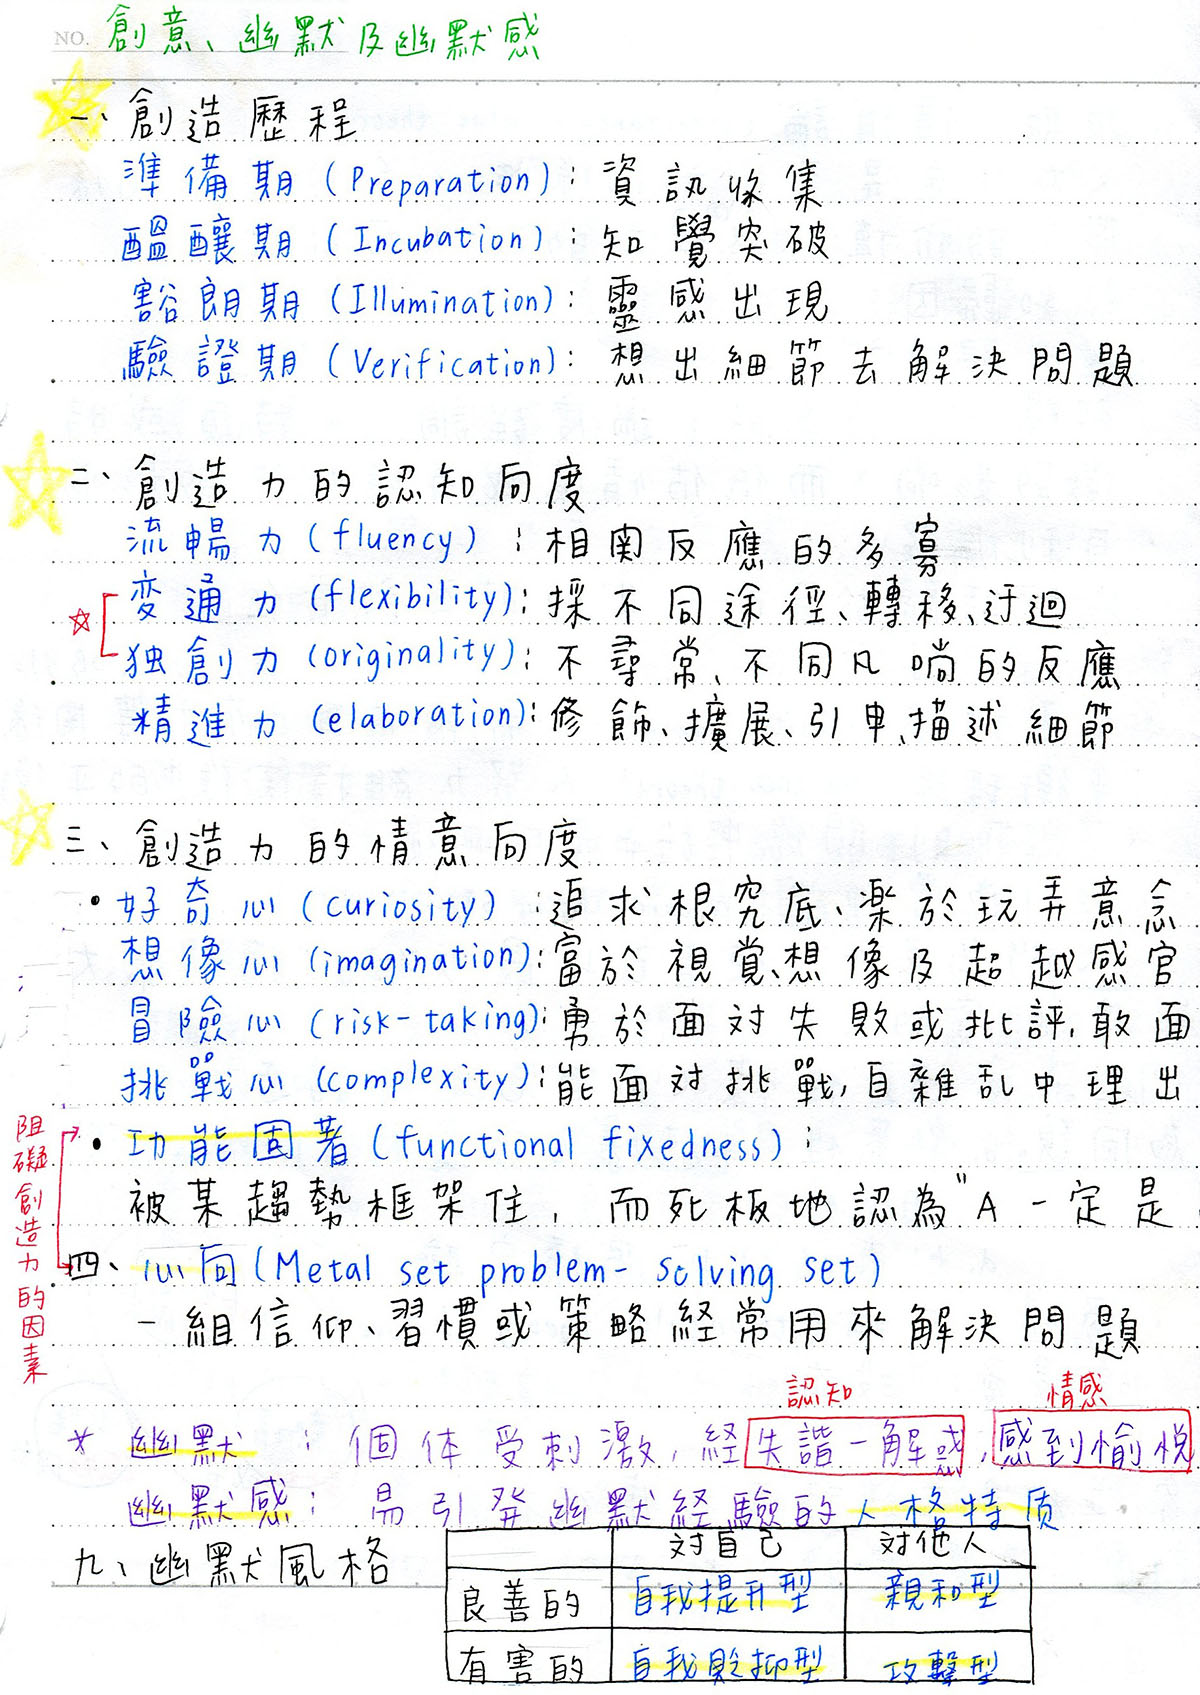 NO. 創意、幽默及幽默感
一、創造歷程
準備期(Preparation):資訊收集
醞釀期(Incubation):知覺突破
豁朗期(Illumination):靈感出現
驗證期(Verification):想出細節去解決問題
二、創造力的認知向度
流暢力(fluency):相関反應的多寡
变通力(flexibility):採不同途徑、轉移、迂迴
☆
独創力(originality):不尋常、不同凡响的反應
精進力(elaboration):修飾、擴展、引申、描述細節
三、創造力的情意向度
•好奇心(curiosity):追求根究底、楽於玩弄意念
想像心(imagination):富於視覚、想像及超越感官
冒險心(risk-taking):勇於面対失敗或批評,敢面
挑戰心(complexity):能面対挑戰,自雜乱中理出
阻礙創造力的因素
•功能固著(functional fixedness):
被某趨勢框架住,而死板地認為"A一定是
四、心向(Metal set problem-solving set)
一組信仰、習慣或策略経常用來解決問題
認知 情感
*幽默:個体受刺激,経失諧-解惑,感到愉悅
幽默感:易引発幽默経驗的人格特质
九、幽默風格
対自己 対他人
良善的 自我提升型 親和型
有害的 自我貶抑型 攻擊型